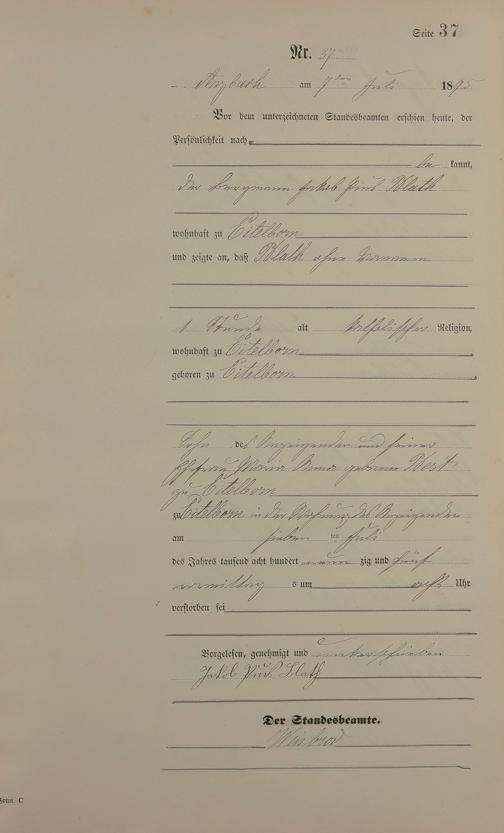 Seite 37
Nr. 37
Arzbach am 7ten Juli 1895
Vor dem unterzeichneten Standesbeamten erschien heute, der
Persönlichkeit nach
be kannt,
der Bergmann Jakob Pius Blath
wohnhaft zu Eitelborn
und zeigte an, daß Blath ohne Vornamen
1 Stunde alt katholischer Religion,
wohnhaft zu Eitelborn
geboren zu Eitelborn
Sohn des Anzeigenden und seiner
Ehefrau Maria Anna geborene Best
zu Eitelborn
zu Eitelborn in der Wohnung des Anzeigenden
am sieben ten Juli
des Jahres tausend acht hundert neun zig und fünf
vormittag s um acht Uhr
verstorben sei
Vorgelesen, genehmigt und unterschrieben
Jakob Pius Blath
Der Standesbeamte.
C